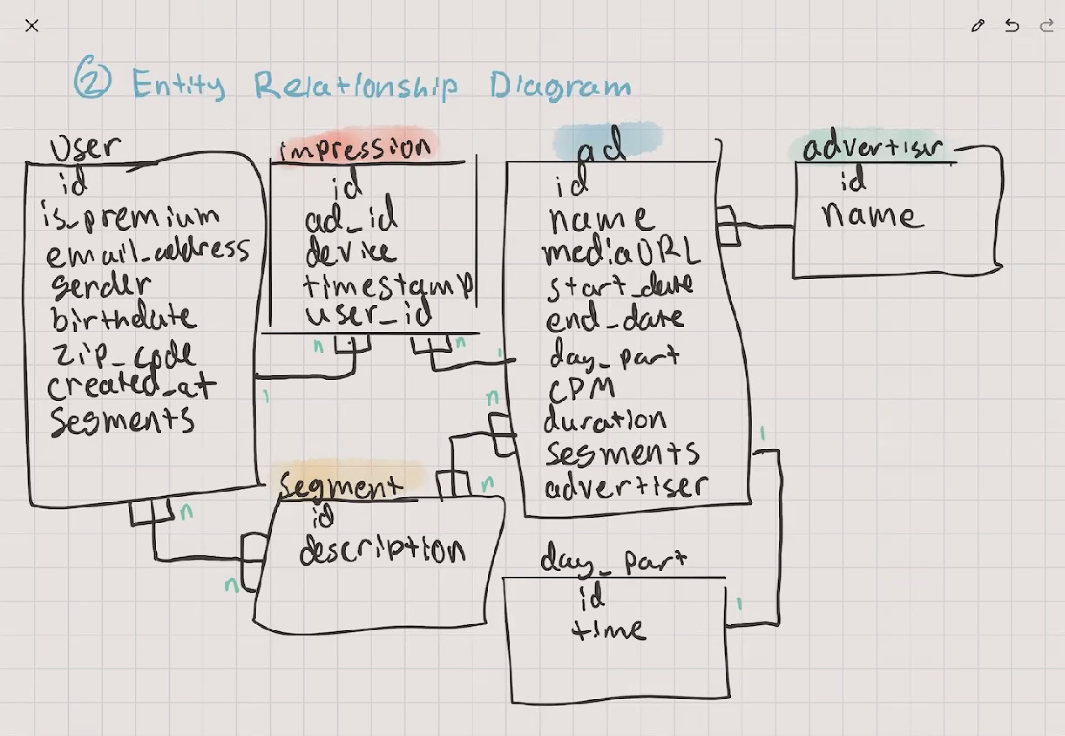 ② Entity Relationship Diagram
User
id
is_premium
email_address
gender
birthdate
zip_code
created_at
segments
impression
id
ad_id
device
timestamp
user_id
n
n
1
1
ad
id
name
mediaURL
start_date
end_date
day_part
CPM
duration
segments
advertiser
n
1
advertiser
id
name
segment
id
description
n
n
n
day_part
id
time
1